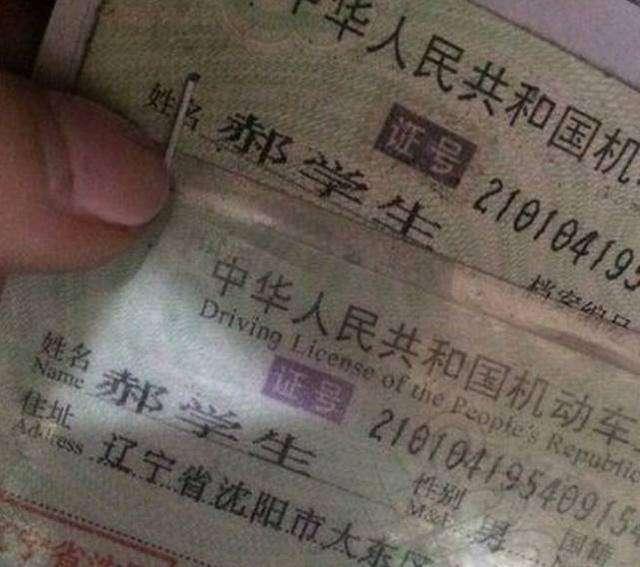 中华人民共和国机
姓名 郝学生 证号 210104195
档案编号
中华人民共和国机动车
Driving License of the People's Republic
姓名 郝学生 证号 210104195409154
Name
住址 辽宁省沈阳市大东区 性别 男 国籍
Address